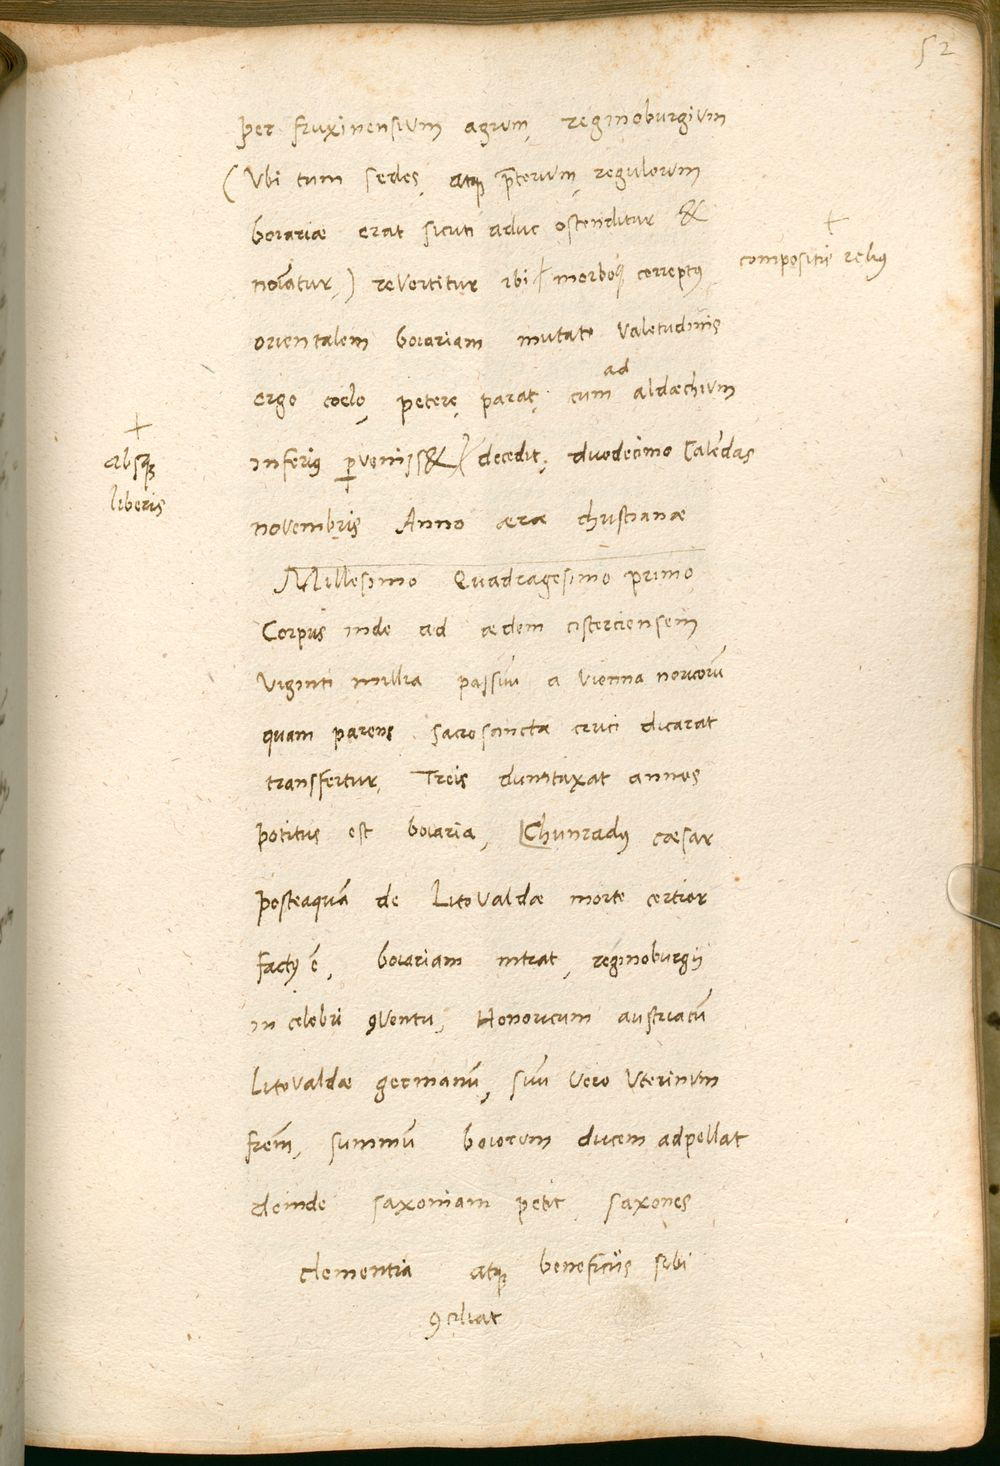 52
per fruxinensium agrum, reginoburgium
(Vbi tum sedes, atqȝ p̄torum, regulorum
boiariæ erat sicuti aduc ostenditur &
noīatur,) reVertitur ibi + morboqȝ correptꝰ
+
compositis rebꝰ
orientalem boiariam mutatæ Valetudinis
ergo coelo, petere, parat, cum ad aldæchium
+
absqȝ
liberis
inferiꝰ ꝑVeniss&, + decedit, duodecimo Calēdas
novembris Anno æræ christianæ
Millesimo Quadragesimo primo
Corpus inde ad ædem cisterciensem
Viginti millia passuū a Vienna noricorū
quam parens sacrosancta cruci dicarat
transfertur, Treis dumtaxat annos
potitus est boiaria, Chunradꝰ cæsar
posteaquā de LitoValdæ morte certior
factꝰ ē, boiariam intrat, reginoburgij
in celebri ꝯVentu, Honoricum austriacū
LitoValdæ germanū, suū Vero Vterinum
frēm, summū boiorum ducem adpellat
deinde saxoniam petit, saxones
clementia atqȝ beneficiis sibi
ꝯciliat